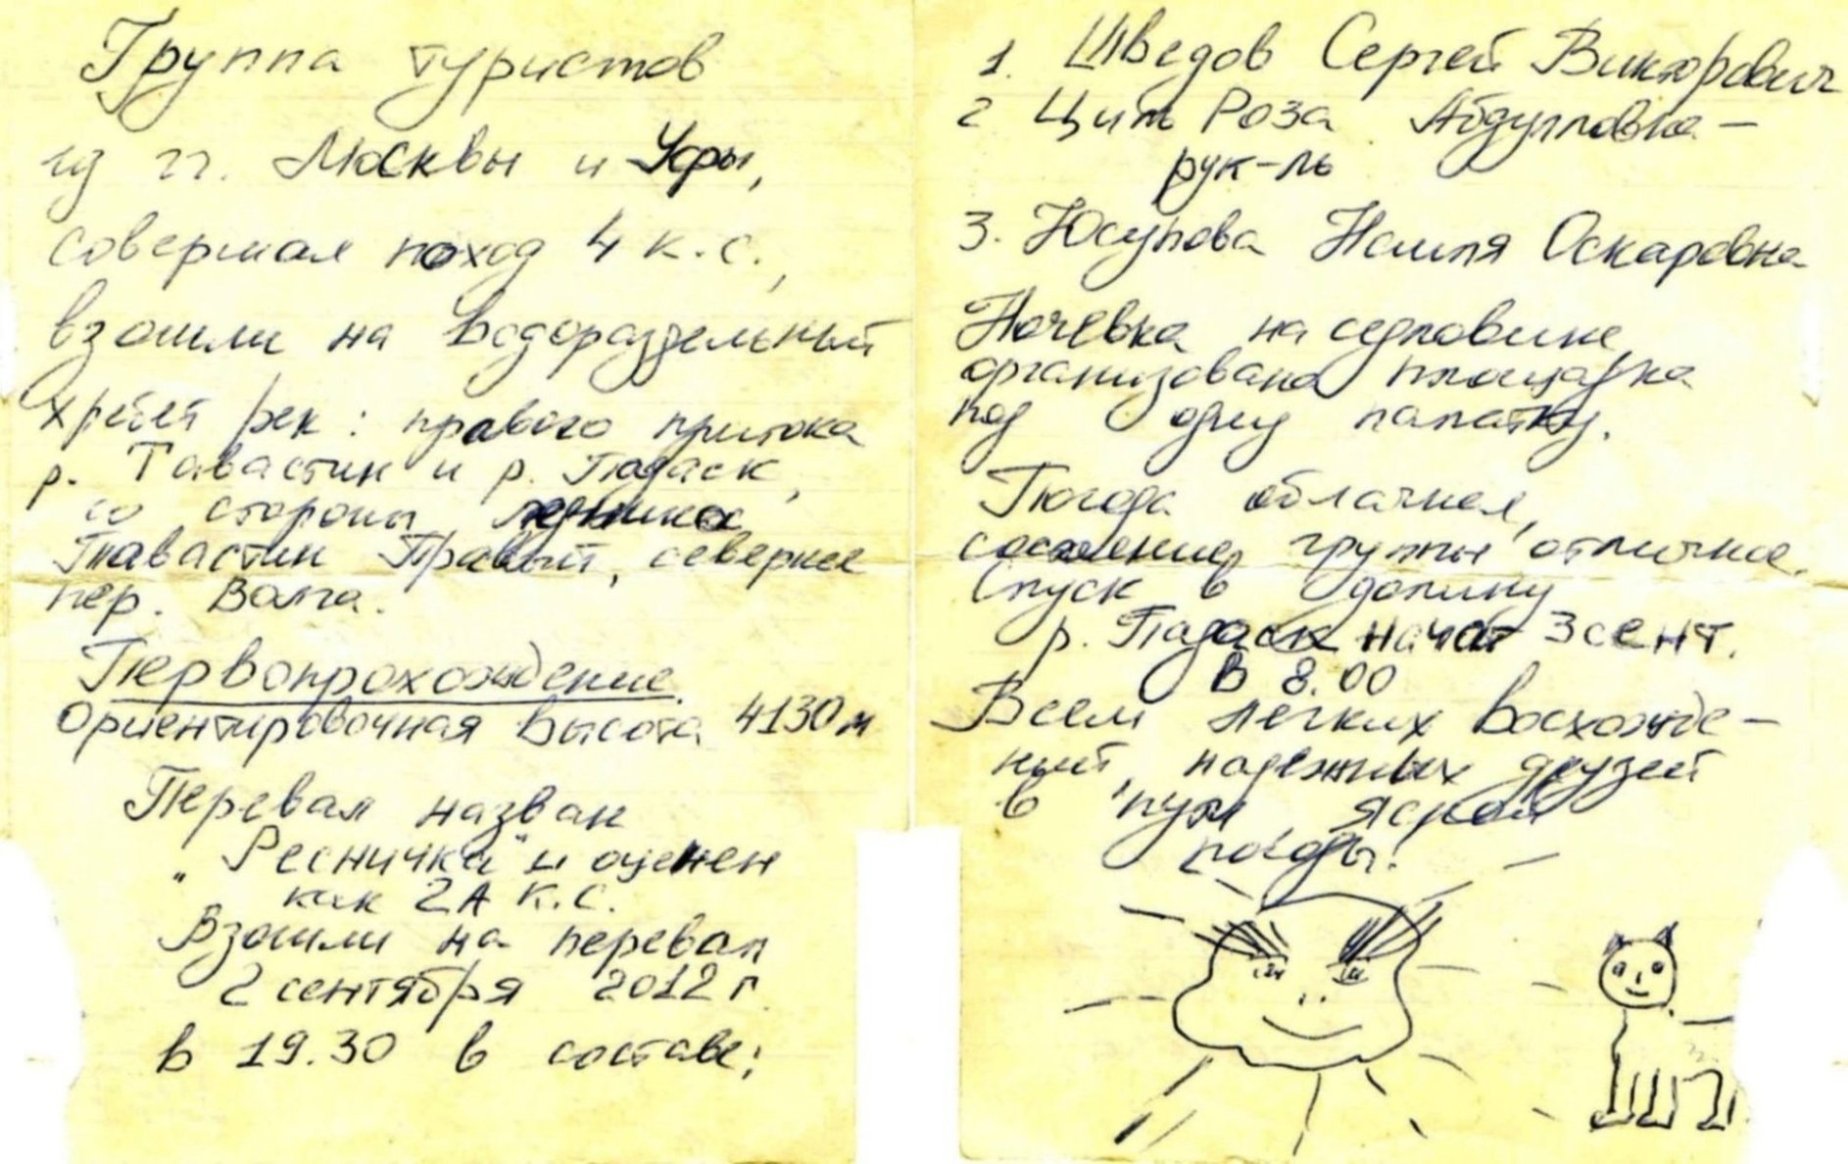 Группа туристов
из гг. Москвы и Уфы,
совершая поход 4 к.с.,
взошли на водораздельный
хребет рек: правого притока
р. Тавастин и р. Падаск,
со стороны ледника
Тавастин Правый, севернее
пер. Волга.
Первопрохождение.
Ориентировочная высота 4130м
Перевал назван
"Ресничка" и оценен
как 2А к.с.
Взошли на перевал
2 сентября 2012 г
в 19.30 в составе:
1. Шведов Сергей Викторович
2 Цит Роза Абдулловна -
рук-ль
3. Юсупова Наиля Оскаровна
Ночевка на седловине,
организована площадка
под одну палатку.
Погода облачная,
состояние группы отличное.
Спуск в долину
р. Падаск начат 3 сент.
в 8.00
Всем легких восхожде-
ний, надежных друзей
в пути ясной
погоды!